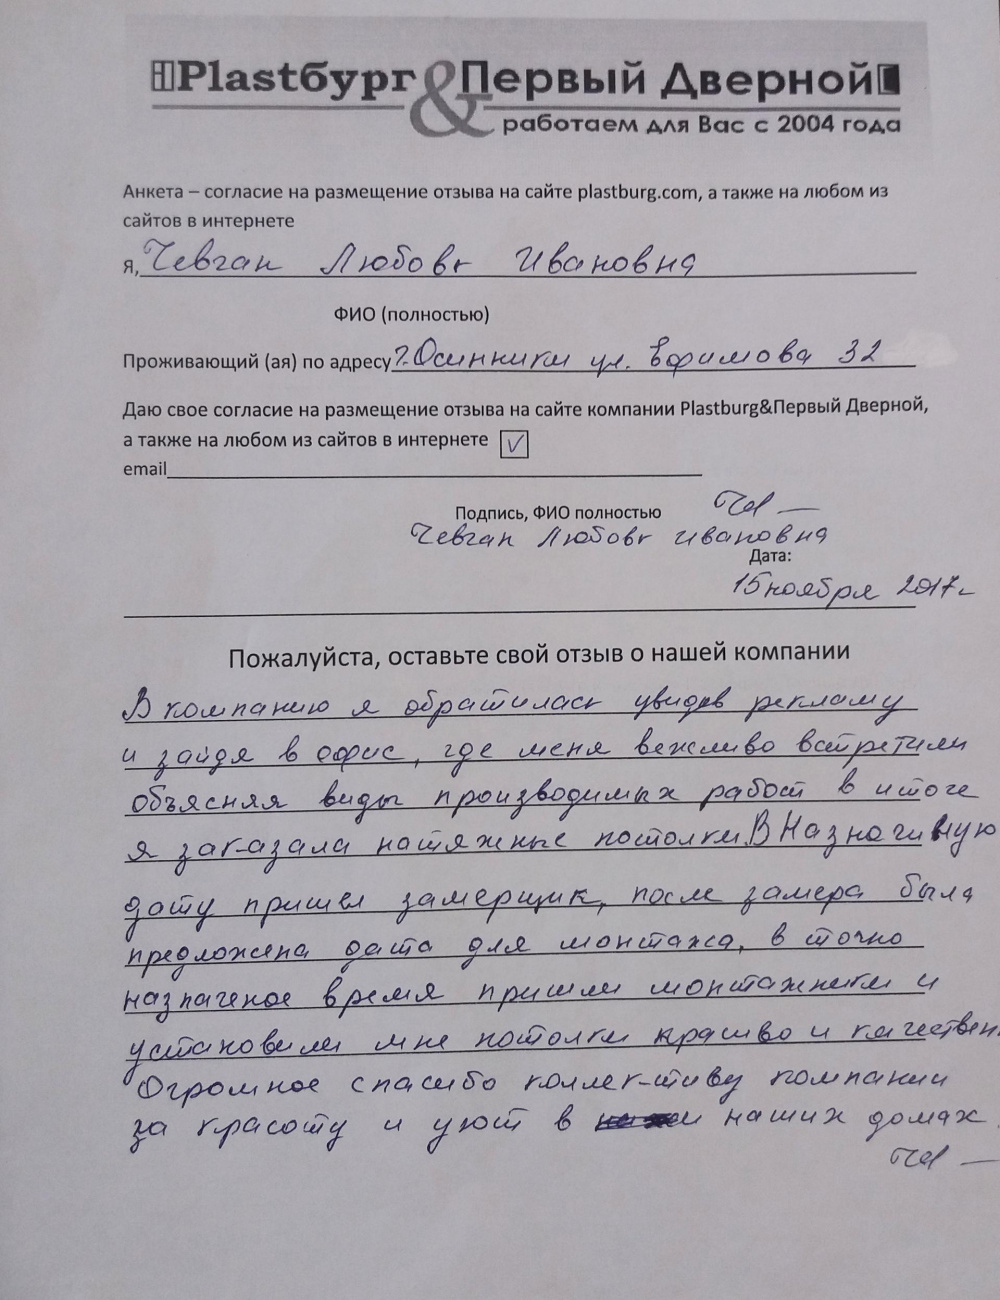 Plastбург & Первый Дверной
работаем для Вас с 2004 года
Анкета – согласие на размещение отзыва на сайте plastburg.com, а также на любом из
сайтов в интернете
я, Чевган Любовь Ивановна
ФИО (полностью)
Проживающий (ая) по адресу г. Осинники ул. Ефимова 32
Даю свое согласие на размещение отзыва на сайте компании Plastburg&Первый Дверной,
а также на любом из сайтов в интернете
email
Подпись, ФИО полностью
Чевган Любовь Ивановна
Дата:
15 ноября 2017г
Пожалуйста, оставьте свой отзыв о нашей компании
В компанию я обратилась увидев рекламу
и зайдя в офис, где меня вежливо встретили
объясняя виды производимых работ в итоге
я заказала натяжные потолки. В Назначивую
дату пришел замерщик, после замера была
предложена дата для монтажа, в точно
назначеное время пришли монтажники и
установили мне потолки красиво и качествен
Огромное спасибо коллективу компании
за красоту и уют в наших домах.